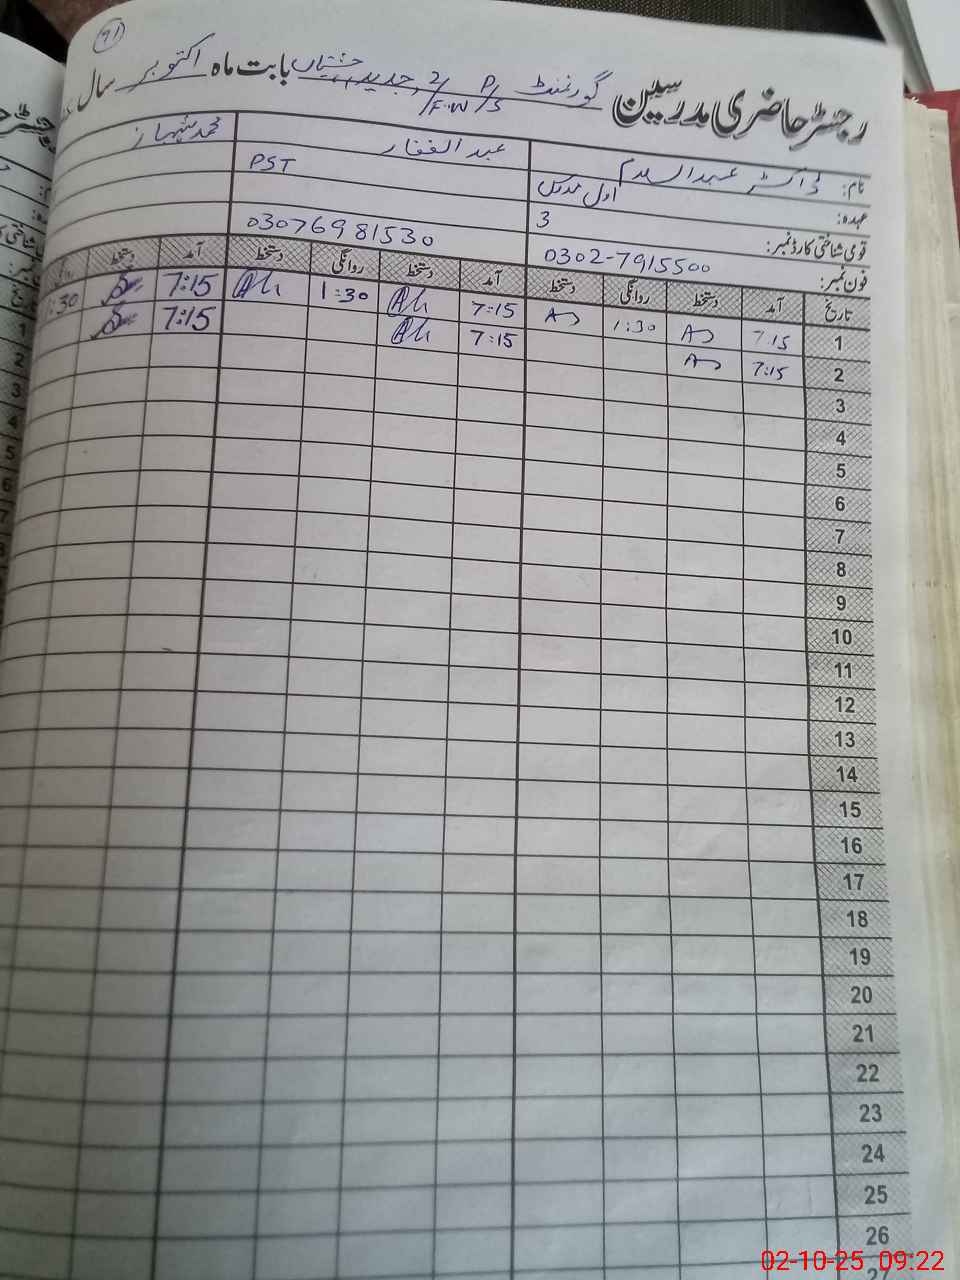 91
رجسٹر حاضری مدرسین گورنمنٹ P/S 2/F.W جدید چشتیاں بابت ماہ اکتوبر سال
نام: ڈاکٹر عبدالسلام عبدالغفار محمد شہباز
عہدہ: اول مدرس PST
قومی شناختی کارڈ نمبر: 3
فون نمبر: 0302-7915500 03076981530
تاریخ آمد دستخط روانگی دستخط آمد دستخط روانگی دستخط آمد دستخط
1 7:15 1:30 7:15 1:30 7:15 :30
2 7:15 7:15 7:15
3
4
5
6
7
8
9
10
11
12
13
14
15
16
17
18
19
20
21
22
23
24
25
26
27
02-10-25 09:22